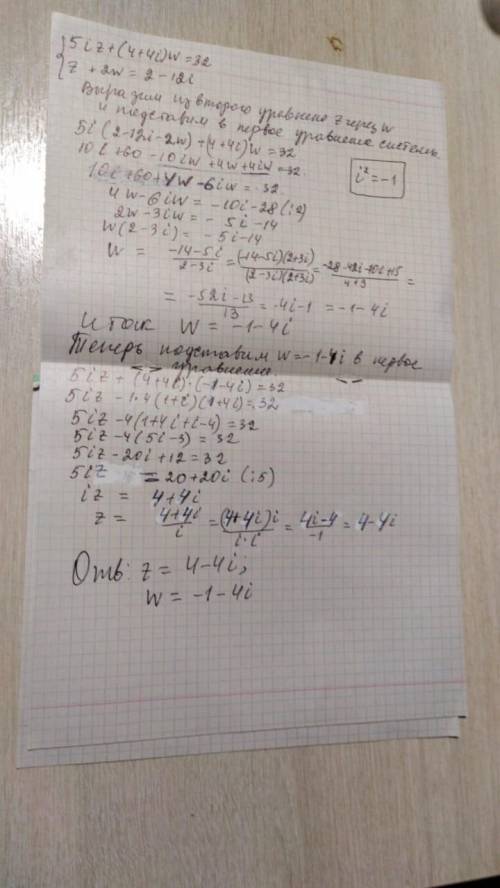 { 5iz+(4+4i)w=32
z + 2w = 2 - 12i
Выразим из второго уравнения z через w
и подставим в первое уравнение системы
5i(2-12i-2w)+(4+4i)w=32
10i+60-10iw+4w+4iw=32
i²=-1
10i+60+4w-6iw=32
4w-6iw=-10i-28 (:2)
2w-3iw=-5i-14
w(2-3i)=-5i-14
w = \frac{-14-5i}{2-3i} = \frac{(-14-5i)(2+3i)}{(2-3i)(2+3i)} = \frac{-28-42i-10i+15}{4+9} =
= \frac{-52i-13}{13} = -4i-1 = -1-4i
Итак w = -1-4i
Теперь подставим w=-1-4i в первое
уравнение
5iz+(4+4i)·(-1-4i)=32
5iz-1·4(1+i)(1+4i)=32
5iz-4(1+4i+i-4)=32
5iz-4(5i-3)=32
5iz-20i+12=32
5iz = 20+20i (:5)
iz = 4+4i
z = \frac{4+4i}{i} = \frac{(4+4i)i}{i·i} = \frac{4i-4}{-1} = 4-4i
Отв: z = 4-4i;
w = -1-4i